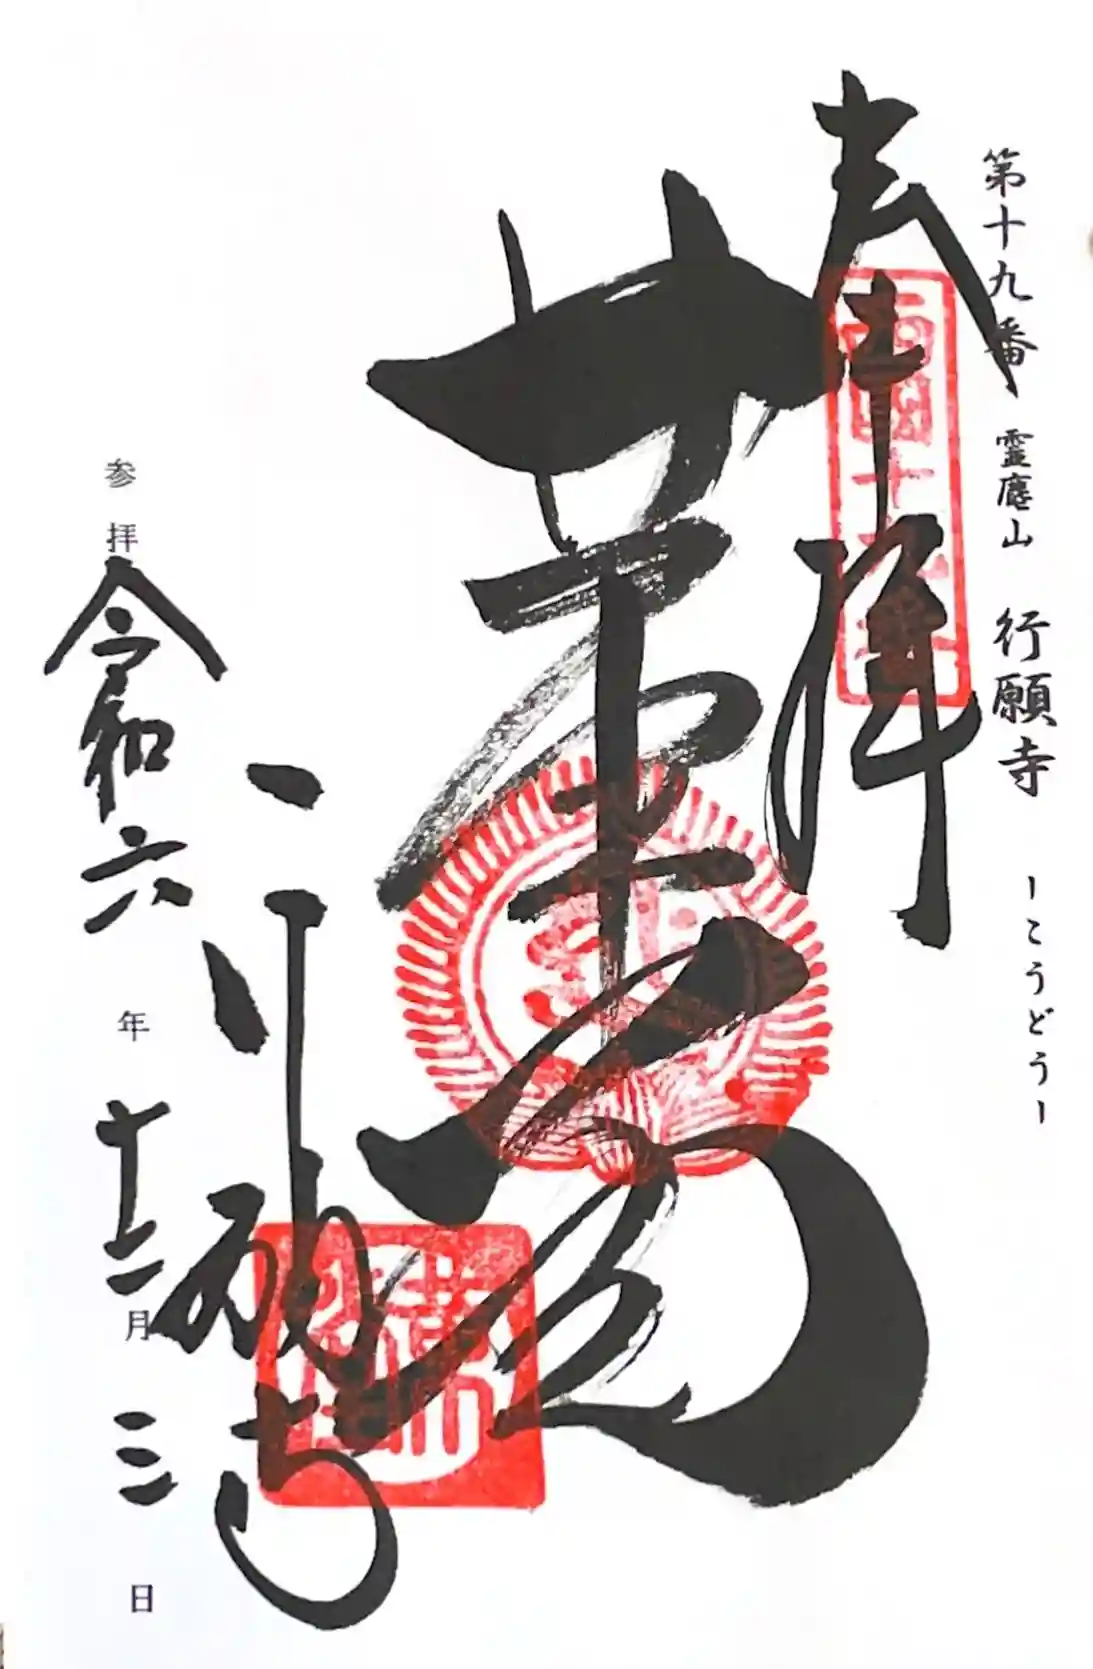 第十九番 霊應山 行願寺 ーこうどうー
奉拝
西国十九番
革堂
行願寺
参拝 令和六年十二月三日